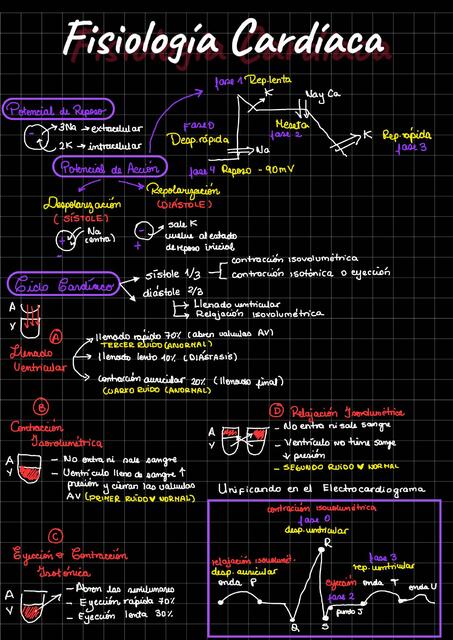 Fisiología Cardíaca
fase 1 Rep.lenta
K
Na y Ca
Potencial de Reposo
3Na → extracelular
2K → intracelular
Fase 0
Desp.rápida
Meseta
fase 2
K
Rep.rápida
fase 3
Na
Potencial de Acción
fase 4 Reposo -90mV
Despolarización
(SÍSTOLE)
Repolarización
(DIÁSTOLE)
Na
(entra)
sale K
vuelve al estado
de reposo inicial
Ciclo Cardíaco
sístole 1/3
contracción isovolumétrica
contracción isotónica o eyección
diástole 2/3
Llenado ventricular
Relajación isovolumétrica
A
V
A
Llenado
Ventricular
llenado rápido 70% (abren valvulas AV)
TERCER RUIDO (ANORMAL)
llenado lento 10% (DIASTASIS)
contracción auricular 20% (llenado final)
CUARTO RUIDO (ANORMAL)
B
Contracción
Isovolumétrica
A
V
- No entra ni sale sangre
- Ventrículo lleno de sangre ↑
presión y cierran las valvulas
AV (PRIMER RUIDO ♥ NORMAL)
D Relajación Isovolumétrica
A
V
- No entra ni sale sangre
- Ventrículo no tiene sangre
↓ presión
- SEGUNDO RUIDO ♥ NORMAL
C
Eyección o Contracción
Isotónica
A
V
- Abren las semilunares
- Eyección rápida 70%
- Eyección lenta 30%
Unificando en el Electrocardiograma
contracción isovolumétrica
fase 0
desp. ventricular
R
relajación isovolumét.
desp. auricular
onda P
fase 3
rep. ventricular
eyección
fase 2
onda T
onda U
punto J
Q
S